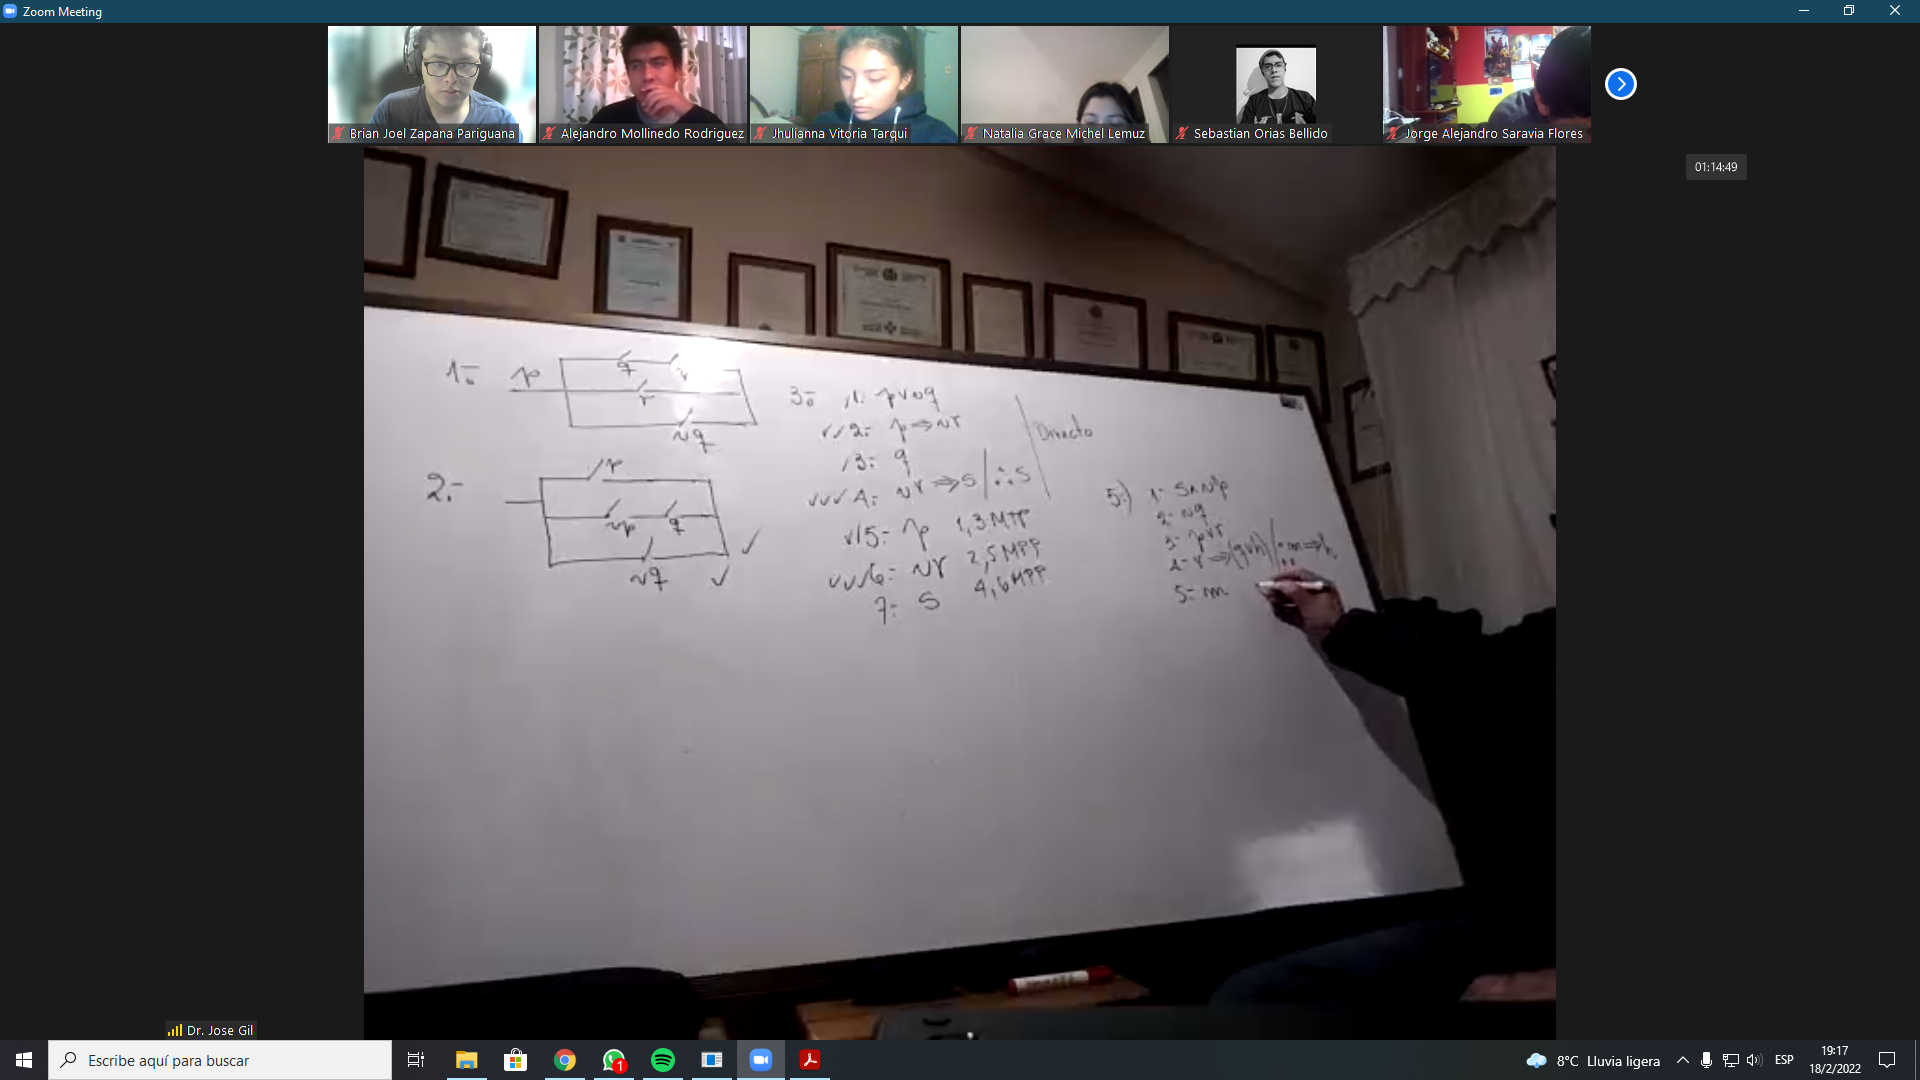 Zoom Meeting
Brian Joel Zapana Pariguana
Alejandro Mollinedo Rodriguez
Jhulianna Vitoria Tarqui
Natalia Grace Michel Lemuz
Sebastian Orias Bellido
Jorge Alejandro Saravia Flores
01:14:49
1-. p
q r
r
~q
2.-
p
~p q
~q
3.- 1.- p∨~q
2.- p⇒~r
3.- q
4.- ~r⇒s/∴s
Directo
5.- p 1,3 MTP
6.- ~r 2,5 MPP
7.- s 4,6 MPP
5.) 1- s∧~p
2- ~q
3- p∨r
4- r⇒(q∨h)/∴m⇒h
5- m
Dr. Jose Gil
Escribe aquí para buscar
1
8°C Lluvia ligera
ESP
19:17
18/2/2022